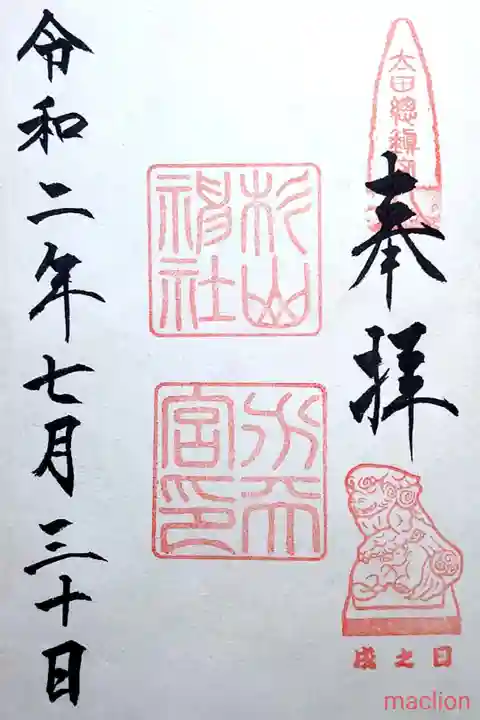 太田總鎮守
奉拝
戌之日
杉山神社
水天宮印
令和二年七月三十日
maclion